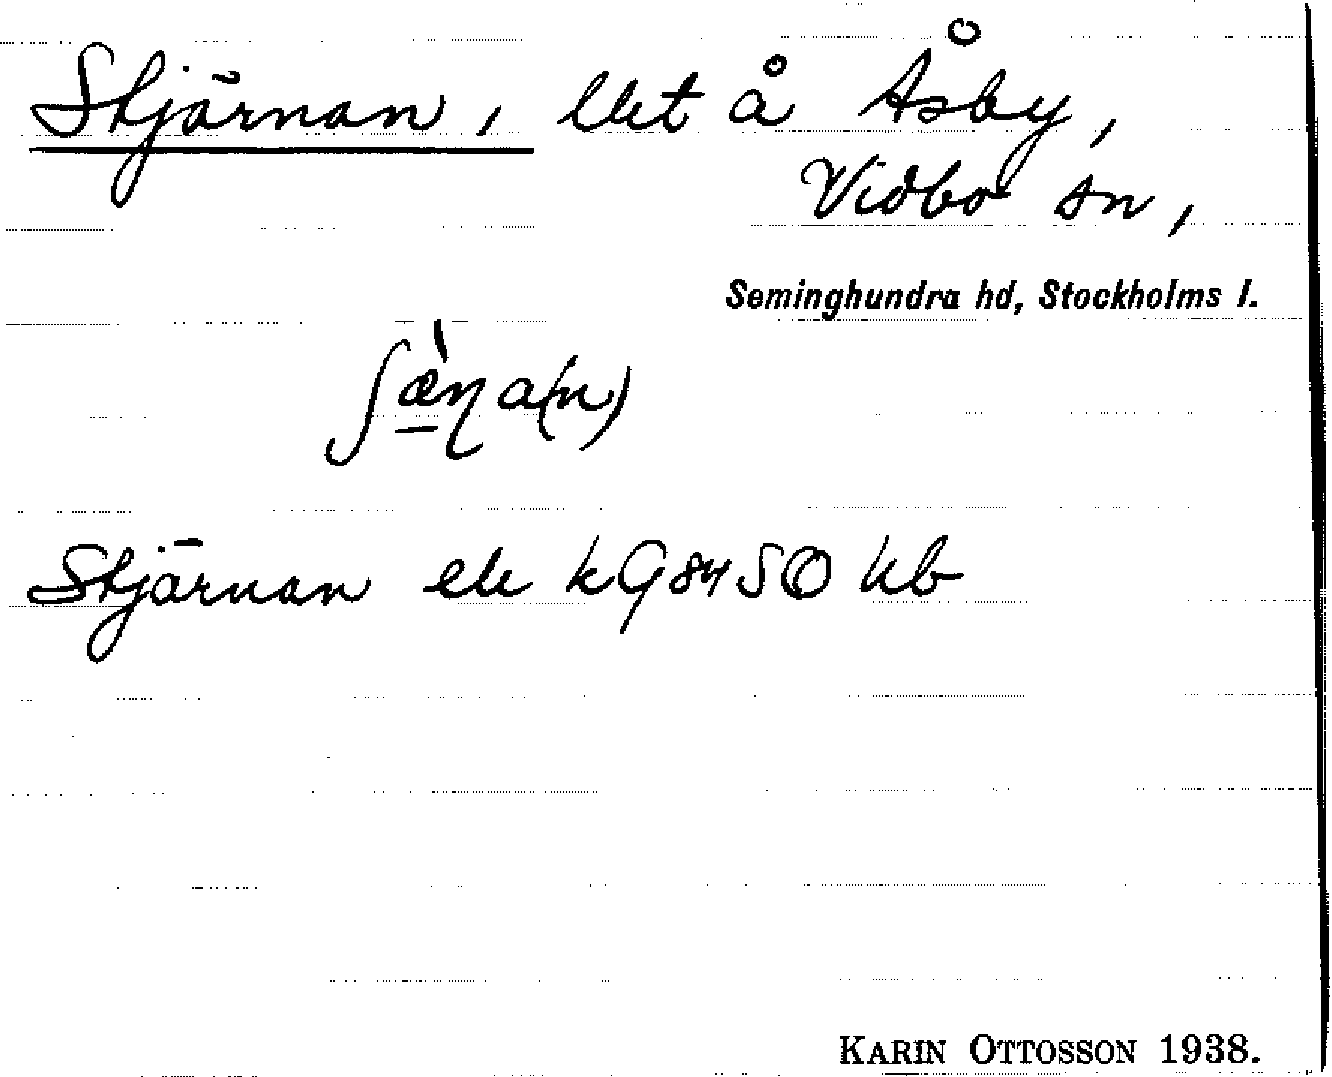 Stjärnan, lht å Åsby,
Vidbo sn,
Seminghundra hd, Stockholms l.
ʃæ̀ṇa(n)
Stjärnan ek kG 84 SO hb
KARIN OTTOSSON 1938.